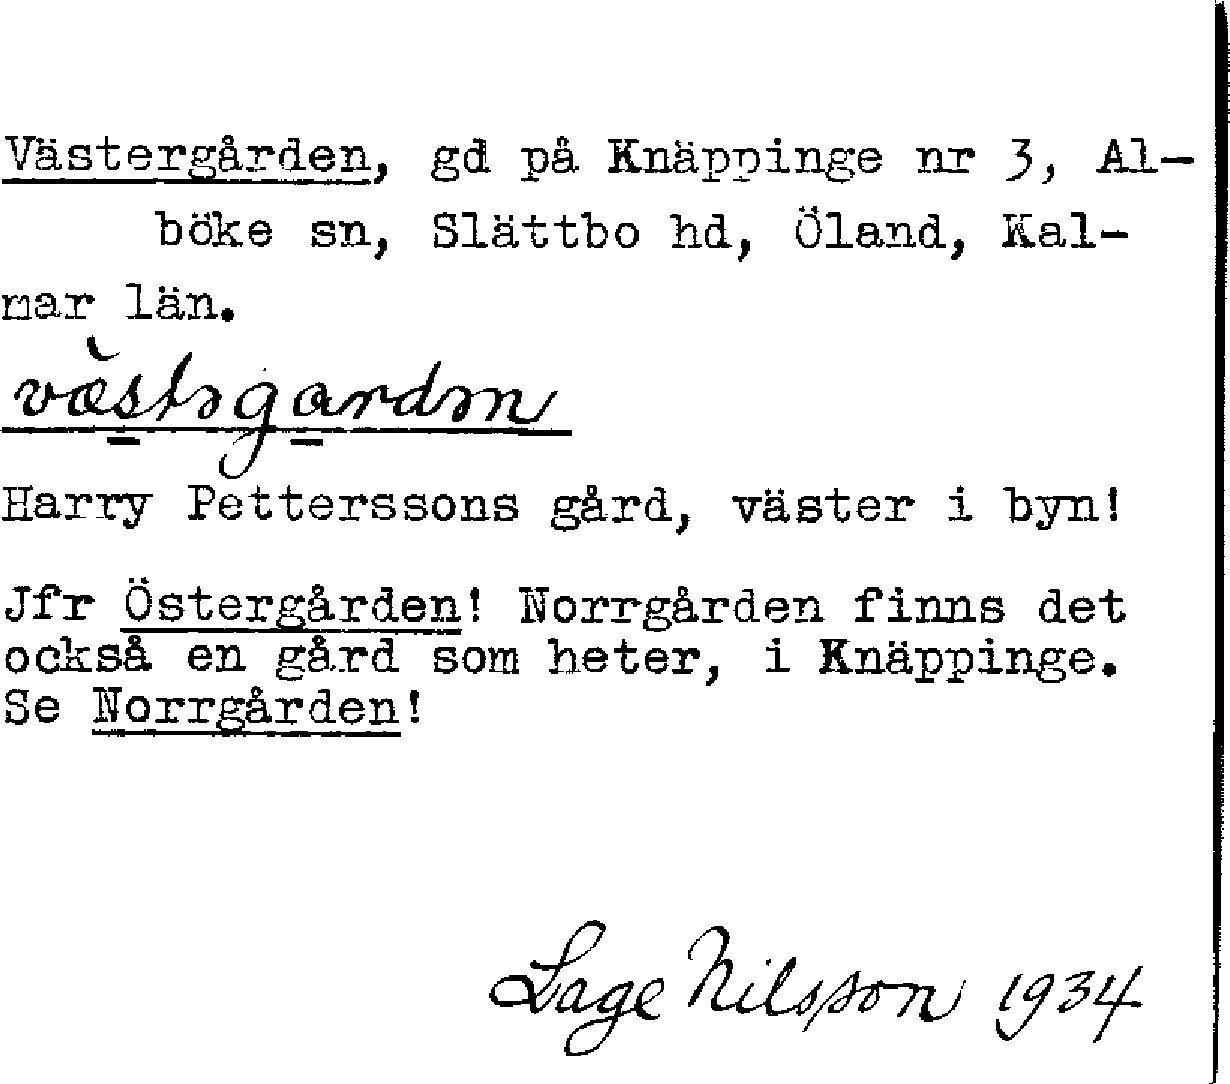 Västergården, gd på Knäppinge nr 3, Al-
böke sn, Slättbo hd, Öland, Kal-
mar län.
Harry Petterssons gård, väster i byn!
Jfr Östergården! Norrgården finns det
också en gård som heter, i Knäppinge.
Se Norrgården!
Lage Nilsson 1934